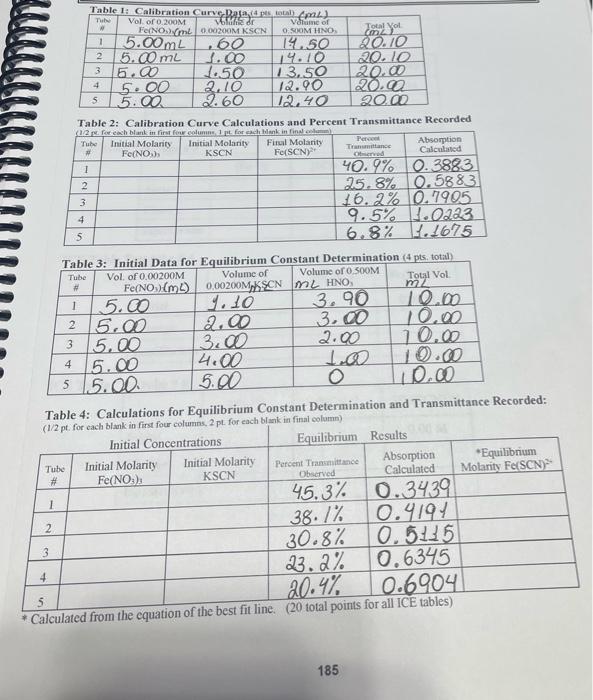 Table 1: Calibration Curve Data (4 pts. total) (mL)
Tube # | Vol. of 0.200M Fe(NO3)3 (mL | Volume of 0.00200M KSCN | Volume of 0.500M HNO3 | Total Vol. (mL)
1 | 5.00mL | .60 | 14.50 | 20.10
2 | 5.00mL | 1.00 | 14.10 | 20.10
3 | 5.00 | 1.50 | 13.50 | 20.00
4 | 5.00 | 2.10 | 12.90 | 20.00
5 | 5.00 | 2.60 | 12.40 | 20.00
Table 2: Calibration Curve Calculations and Percent Transmittance Recorded
(1/2 pt. for each blank in first four columns, 1 pt. for each blank in final column)
Tube # | Initial Molarity Fe(NO3)3 | Initial Molarity KSCN | Final Molarity Fe(SCN)2+ | Percent Transmittance Observed | Absorption Calculated
1 | 40.9% | 0.3883
2 | 25.8% | 0.5883
3 | 16.2% | 0.7905
4 | 9.5% | 1.0223
5 | 6.8% | 1.1675
Table 3: Initial Data for Equilibrium Constant Determination (4 pts. total)
Tube # | Vol. of 0.00200M Fe(NO3)3 (mL) | Volume of 0.00200M KSCN | Volume of 0.500M mL HNO3 | Total Vol. mL
1 | 5.00 | 1.10 | 3.90 | 10.00
2 | 5.00 | 2.00 | 3.00 | 10.00
3 | 5.00 | 3.00 | 2.00 | 10.00
4 | 5.00 | 4.00 | 1.00 | 10.00
5 | 5.00 | 5.00 | 0 | 10.00
Table 4: Calculations for Equilibrium Constant Determination and Transmittance Recorded:
(1/2 pt. for each blank in first four columns, 2 pt. for each blank in final column)
Initial Concentrations | Equilibrium Results
Tube # | Initial Molarity Fe(NO3)3 | Initial Molarity KSCN | Percent Transmittance Observed | Absorption Calculated | *Equilibrium Molarity Fe(SCN)2+
1 | 45.3% | 0.3439
2 | 38.1% | 0.4191
3 | 30.8% | 0.5115
4 | 23.2% | 0.6345
5 | 20.4% | 0.6904
* Calculated from the equation of the best fit line. (20 total points for all ICE tables)
185